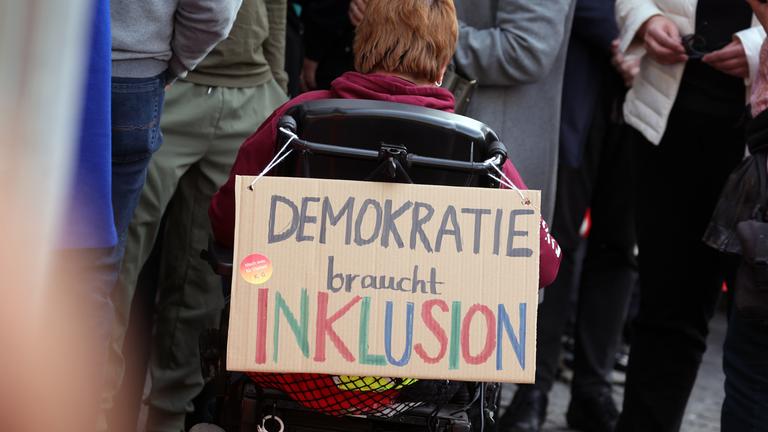 DEMOKRATIE
braucht
INKLUSION